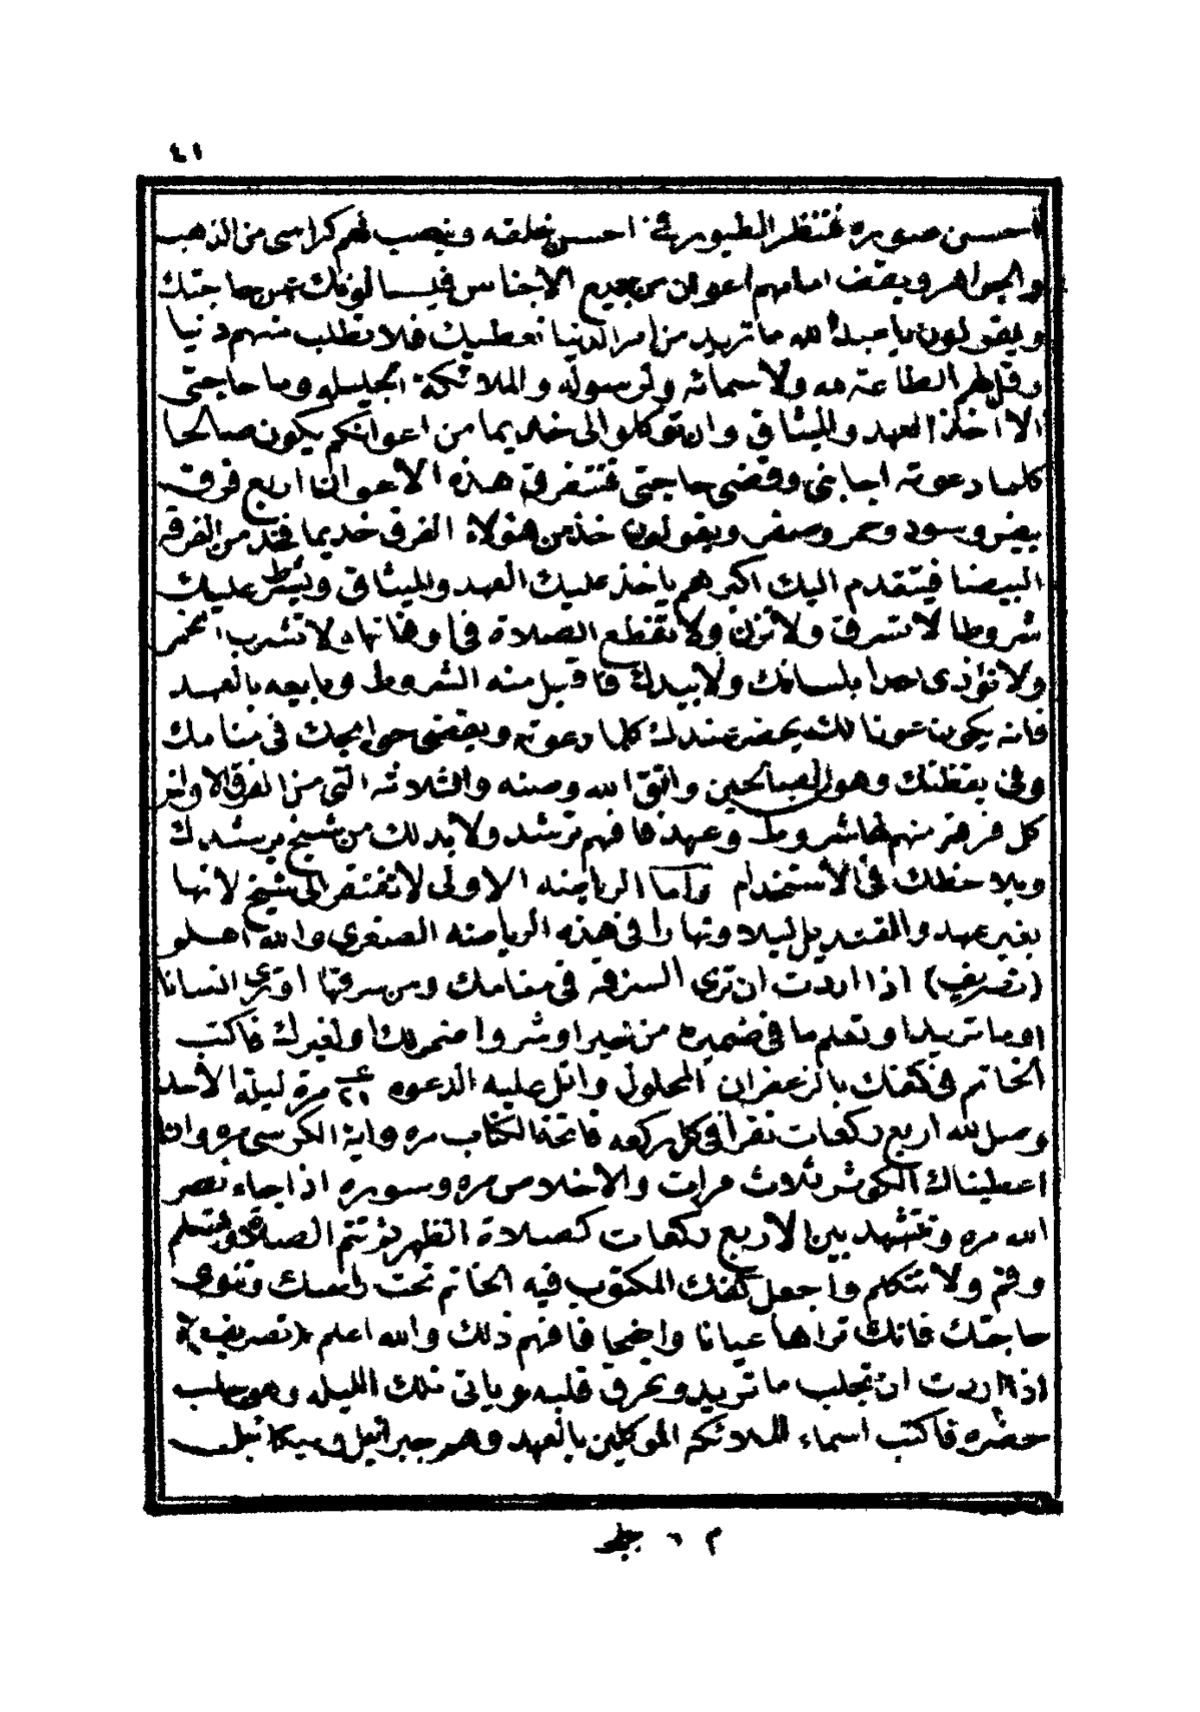 ٤١
احسن صوره فتنظر الطيور في احسن خلقه وينصب لهم كراسى من الذهب
والجواهر ويقف امامهم اعوان من جميع الاجناس فيسالونك عن حاجتك
ويقولون يا عبد الله ما تريد من امر الدنيا نعطيك فلا تطلب منهم دنيا
وقل لهم الطاعة لله ولاسمائه ولرسوله والملائكة الجليله وما حاجتى
الا اخذ العهد والميثاق وان توكلوا الى خديما من اعوانكم يكون صالحا
كلما دعوته اجابنى وقضى حاجتى فتتفرق هذه الاعوان اربع فرق
بيض وسود وحمر وصفر ويقولون خذ من هؤلاء الفرق خديما فخذ من الفرقة
البيضا فيتقدم اليك اكبرهم ياخذ عليك العهد والميثاق ويشترط عليك
شروطا لا تسرق ولا تزن ولا تقطع الصلاة فى اوقاتها ولا تشرب الخمر
ولا تؤذى احدا بلسانك ولا بيدك فاقبل منه الشروط وبايعه بالعهد
فانه يكون عونا لك يحضر عندك كلما دعوته ويقضى حوايجك فى منامك
وفى يقظتك وهو للصالحين واتق الله وصنه والثلاثه التى من الفرق الاواخر
كل فرقة منهم لها شروط وعهد فافهم ترشد ولا بد لك من شيخ يرشدك
ويلاحظك فى الاستخدام واما الرياضه الاولى لا تفتقر الى شيخ لانها
بغير عهد والقنديل ليلا ونهارا فى هذه الرياضه الصغرى والله اعلم
(تصريف) اذا اردت ان ترى السرقه فى منامك ومن سرقها او ترى انسانا
او ما تريد او تعلم ما فى ضميره من خير او شر واضمر لك او لغيرك فاكتب
الخاتم فى كفك بالزعفران المحلول واتل عليه الدعوه ٢١ مرة ليلة الاحد
وصل لله اربع ركعات تقرا فى كل ركعه فاتحة الكتاب مره واية الكرسى مره وانا
اعطيناك الكوثر ثلاث مرات والاخلاص مره وسوره اذا جاء نصر
الله مره وتتشهد بين الاربع ركعات كصلاة الظهر ثم تتم الصلاة وتسلم
وقم ولا تتكلم واجعل كفك المكتوب فيه الخاتم تحت راسك وتنوى
حاجتك فانك تراها عيانا واضحا فافهم ذلك والله اعلم (تصريف)
اذا اردت ان تجلب ما تريد وتحرق قلبه وياتى تلك الليله وهو جلب
حضره فاكتب اسماء الملائكه الموكلين بالعهد وهم جبرائيل وميكائيل
م ٦